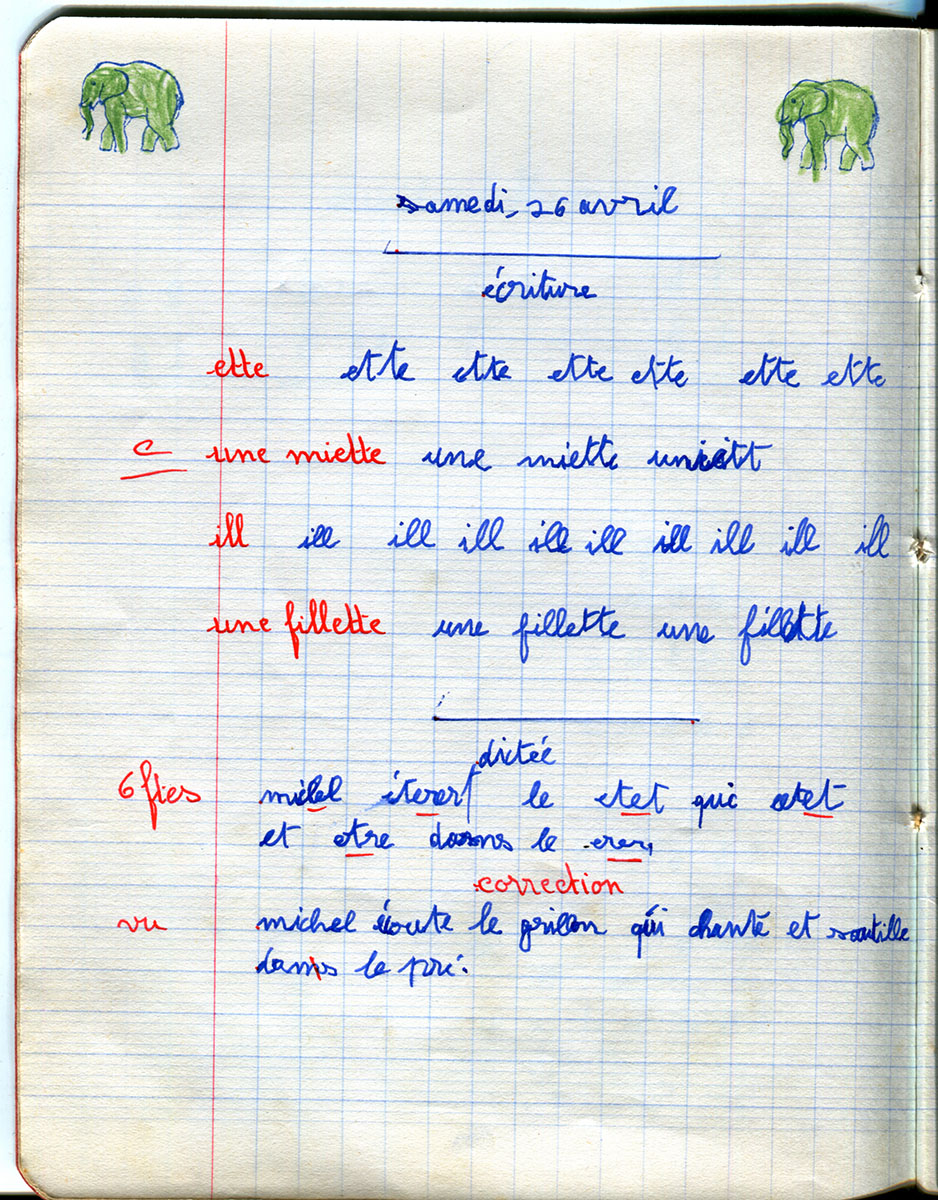 samedi, 26 avril
écriture
ette ette ette ette ette ette ette
C une miette une miette
ill ill ill ill ill ill ill ill ill ill
une fillette une fillette une fillette
dictée
6 ftes michel le etet qui etet
et etre dans le erer,
correction
vu michel écoute le grillon qui chante et sautille
dans le pré.